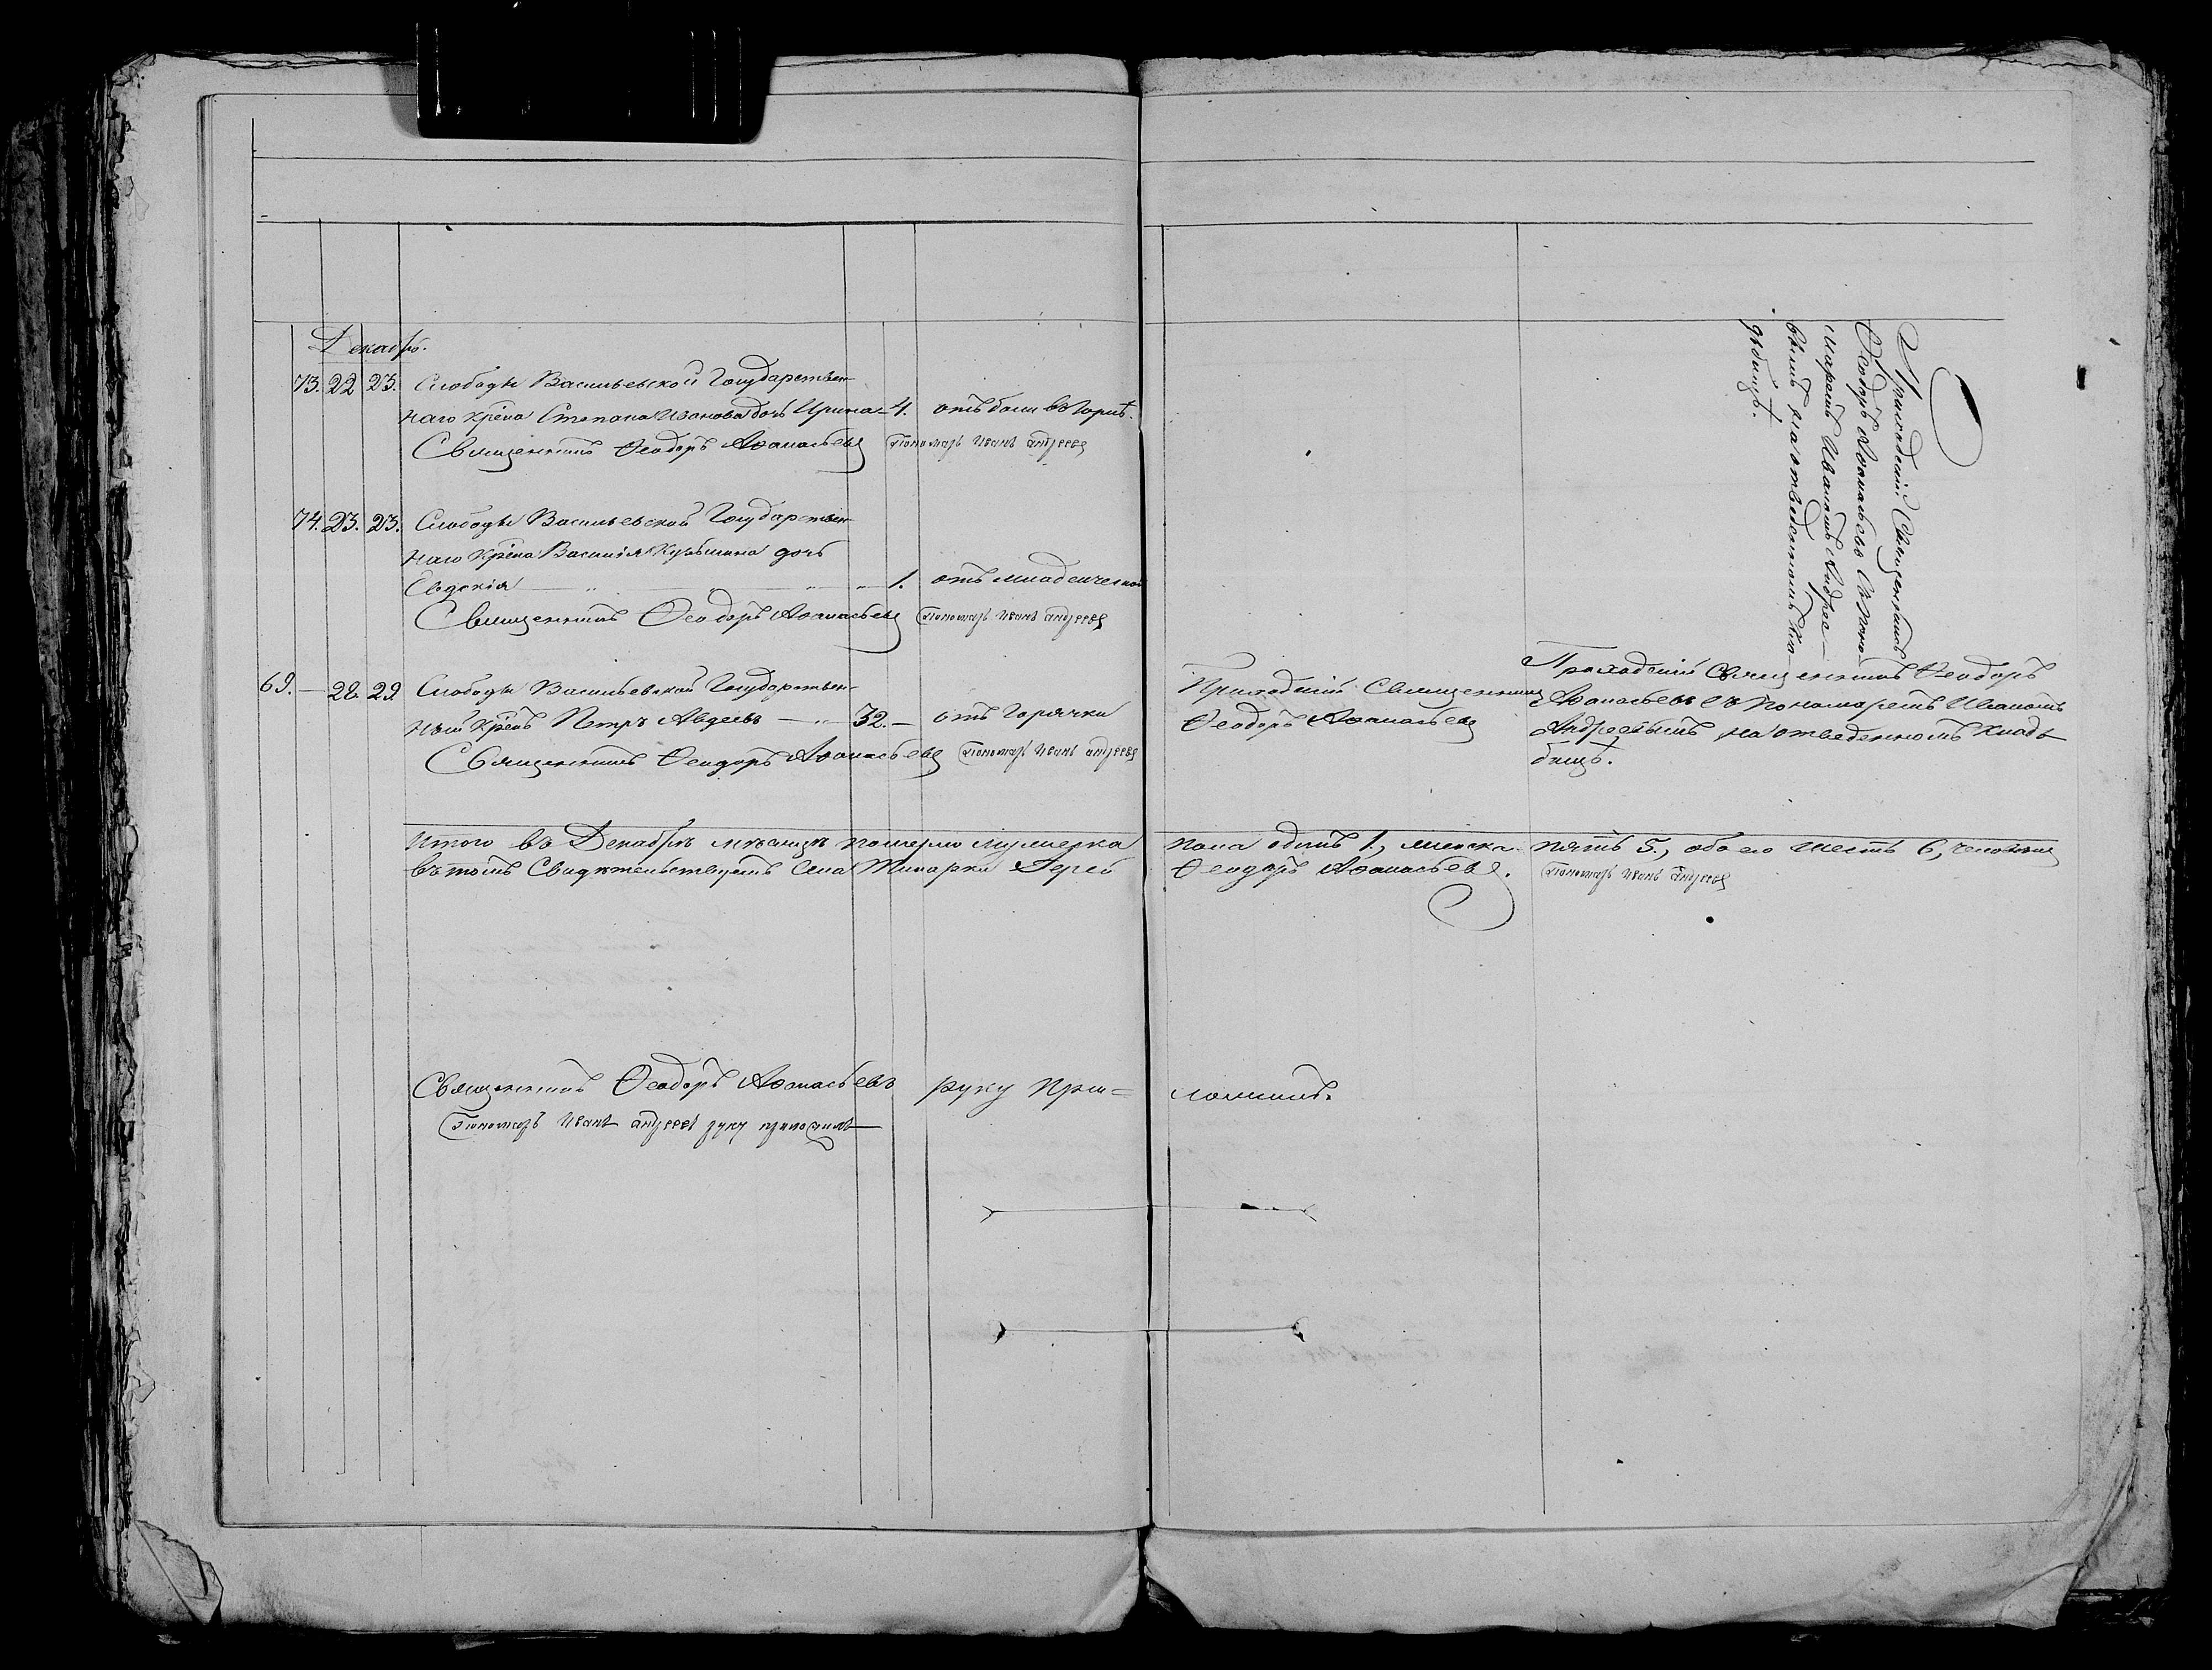 Декабрь.
73. 22 23. Слободы Васильевской Государствен-
наго Крѣпа Степана Иванова дочь Ирина — 4. отъ боли въ Горлѣ.
Священникъ Ѳеодоръ Аѳанасьевъ Пономарь Иванъ Андреевъ
74. 23. 23. Слободы Васильевской Государствен-
наго Крѣпа Василія Кузьмина дочь
Евдокія — 1. отъ младенческой
Священникъ Ѳеодоръ Аѳанасьевъ Пономарь Иванъ Андреевъ
69. — 28. 29 Слободы Васильевской Государствен-
ный Крѣпъ Петръ Авдеевъ — 32. — отъ Горячки
Священникъ Ѳеодоръ Аѳанасьевъ Пономарь Иванъ Андреевъ
Приходскій Священникъ
Ѳеодоръ Аѳанасьевъ
Приходскій Священникъ
Ѳеодоръ Аѳанасьевъ съ Поно-
маремъ Иваномъ Андрее-
вымъ на отведенномъ Кла-
дбищѣ.
Приходскій Священникъ Ѳеодоръ
Аѳанасьевъ съ Пономаремъ Иваномъ
Андреевымъ на отведенномъ Клад-
бищѣ.
Итого въ Декабрѣ мѣсяцѣ померло мужеска пола одинъ 1., женска пять 5., обоего шесть 6, человѣкъ
Въ томъ Свидѣтельствуемъ Села Іерей Ѳеодоръ Аѳанасьевъ. Пономарь Иванъ Андреевъ
Священникъ Ѳеодоръ Аѳанасьевъ руку при= ложилъ.
Пономарь Иванъ Андреевъ руку приложилъ